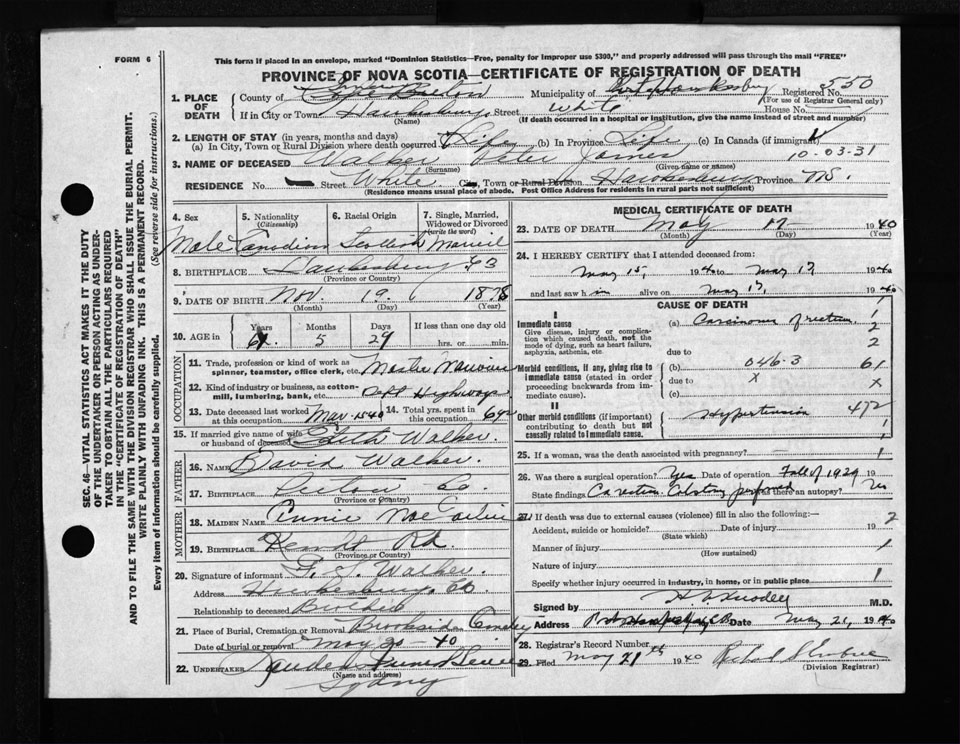 FORM 6
This form if placed in an envelope, marked "Dominion Statistics—Free, penalty for improper use $300," and properly addressed will pass through the mail "FREE"
PROVINCE OF NOVA SCOTIA—CERTIFICATE OF REGISTRATION OF DEATH
SEC. 46—VITAL STATISTICS ACT MAKES IT THE DUTY
OF THE UNDERTAKER OR PERSON ACTING AS UNDER-
TAKER TO OBTAIN ALL THE PARTICULARS REQUIRED
IN THE "CERTIFICATE OF REGISTRATION OF DEATH"
AND TO FILE THE SAME WITH THE DIVISION REGISTRAR WHO SHALL ISSUE THE BURIAL PERMIT.
WRITE PLAINLY WITH UNFADING INK. THIS IS A PERMANENT RECORD.
Every item of information should be carefully supplied. (See reverse side for instructions.)
1. PLACE OF DEATH
County of Municipality of Port Hawkesbury Registered No. 550
(For use of Registrar General only)
If in City or Town Hawkesbury Street White House No.
(Name) (If death occurred in a hospital or institution, give the name instead of street and number)
2. LENGTH OF STAY (in years, months and days)
(a) In City, Town or Rural Division where death occurred Life (b) In Province Life (c) In Canada (if immigrant)
3. NAME OF DECEASED Walker Peter James 10-03-31
(Surname) (Given name or names)
RESIDENCE No. Street White City, Town or Rural Division Hawkesbury Province N.S.
(Residence means usual place of abode. Post Office Address for residents in rural parts not sufficient)
4. Sex 5. Nationality (Citizenship) 6. Racial Origin 7. Single, Married, Widowed or Divorced (write the word)
Male Canadian Scottish Married
8. BIRTHPLACE Hawkesbury C B
(Province or Country)
9. DATE OF BIRTH Nov. 19. 1878
(Month) (Day) (Year)
10. AGE in Years Months Days If less than one day old
5 29 hrs. or min.
OCCUPATION
11. Trade, profession or kind of work as spinner, teamster, office clerk, etc. Master Mariner
12. Kind of industry or business, as cotton-mill, lumbering, bank, etc. Dept Highways
13. Date deceased last worked at this occupation Mar. 1940 14. Total yrs. spent in this occupation
15. If married give name of wife or husband of deceased Edith Walker.
FATHER
16. NAME David Walker.
17. BIRTHPLACE Pictou Co
(Province or Country)
MOTHER
18. MAIDEN NAME Annie
19. BIRTHPLACE Rd.
(Province or Country)
20. Signature of informant Walker.
Address Hawkesbury, CB
Relationship to deceased Brother
21. Place of Burial, Cremation or Removal Brookside
Date of burial or removal May 20 40
22. UNDERTAKER Funeral Service
(Name and address)
Sydney
MEDICAL CERTIFICATE OF DEATH
23. DATE OF DEATH May 17 1940
(Month) (Day) (Year)
24. I HEREBY CERTIFY that I attended deceased from:
May 15, 1940 to May 17 1940
and last saw him alive on May 17, 1940
CAUSE OF DEATH
I
Immediate cause
Give disease, injury or complication which caused death, not the mode of dying, such as heart failure, asphyxia, asthenia, etc
(a) Carcinoma of rectum
due to
Morbid conditions, if any, giving rise to immediate cause (stated in order proceeding backwards from immediate cause).
(b) 046.3 61
due to X X
(c)
II
Other morbid conditions (if important) contributing to death but not causally related to immediate cause.
Hypertension 472
25. If a woman, was the death associated with pregnancy?
26. Was there a surgical operation? Yes Date of operation Fall of 1939 19
State findings Ca rectum Colostomy performed Was there an autopsy? No
27. If death was due to external causes (violence) fill in also the following:—
Accident, suicide or homicide? Date of injury 19 2
(State which)
Manner of injury
(How sustained)
Nature of injury
Specify whether injury occurred in industry, in home, or in public place
Signed by M.D.
Address Date May 21, 1940
28. Registrar's Record Number
29. Filed May 21th 1940
(Division Registrar)